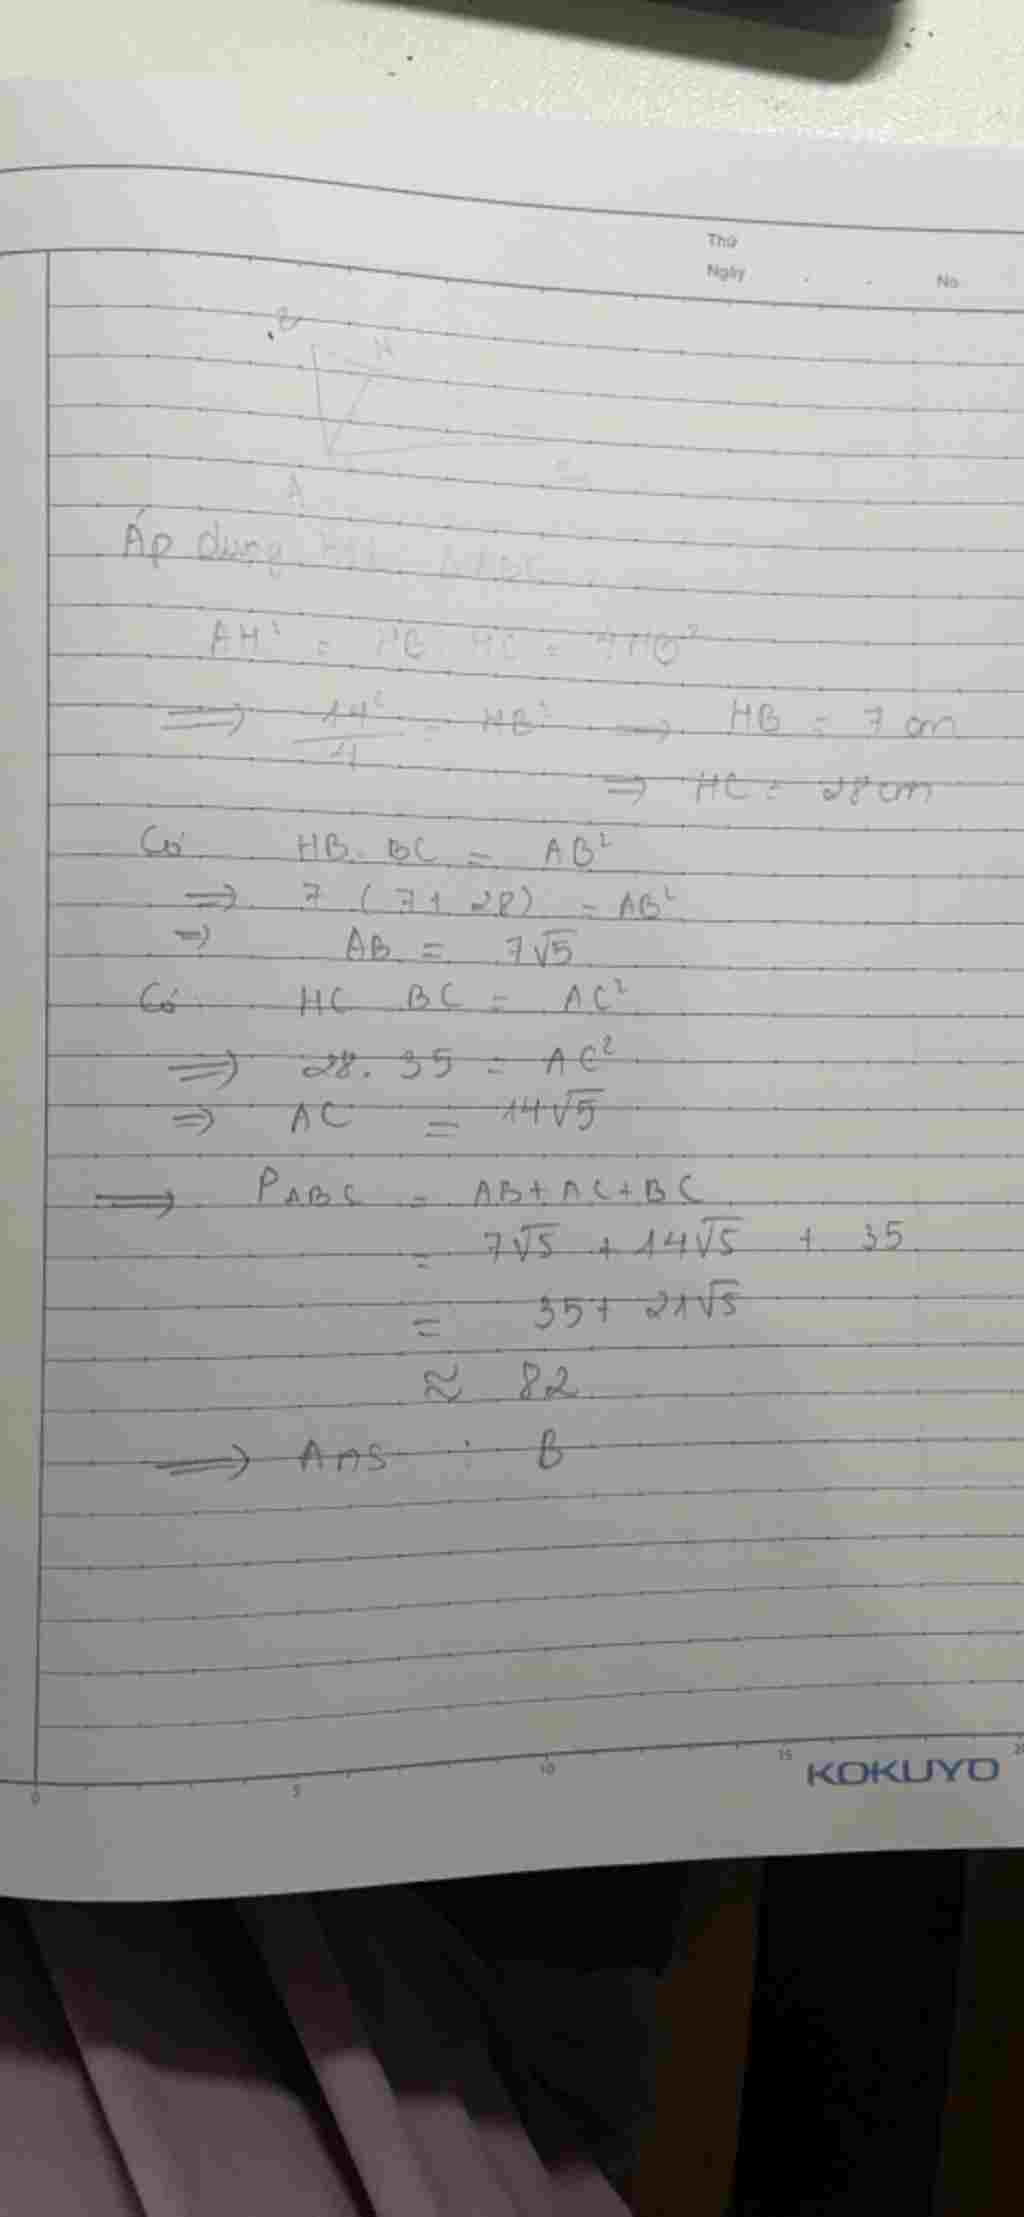 Thứ
Ngày . . No.
B
H
A
Áp dụng
AH² = HB . HC = 4HB²
=> 14²/4 = HB² => HB = 7 cm
=> HC = 28 cm
Có HB. BC = AB²
=> 7 (7+28) = AB²
=> AB = 7√5
Có HC BC = AC²
=> 28. 35 = AC²
=> AC = 14√5
=> P ABC = AB+AC+BC
= 7√5 + 14√5 + 35
= 35+ 21√5
≈ 82
=> Ans : B
0 5 10 15 20
KOKUYO